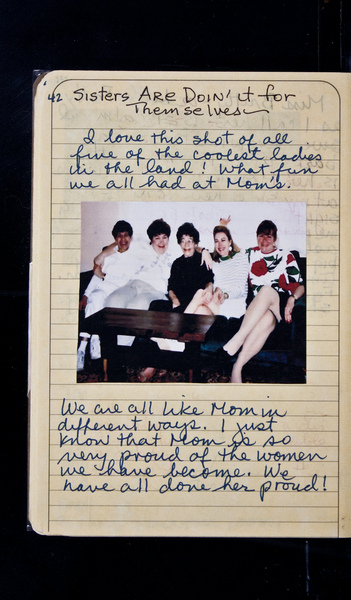 42 Sisters Are Doin' it for
Themselves
I love this shot of all
five of the coolest ladies
in the land! What fun
we all had at Mom's.
We are all like Mom in
different ways. I just
know that Mom is so
very proud of the women
we have become. We
have all done her proud!